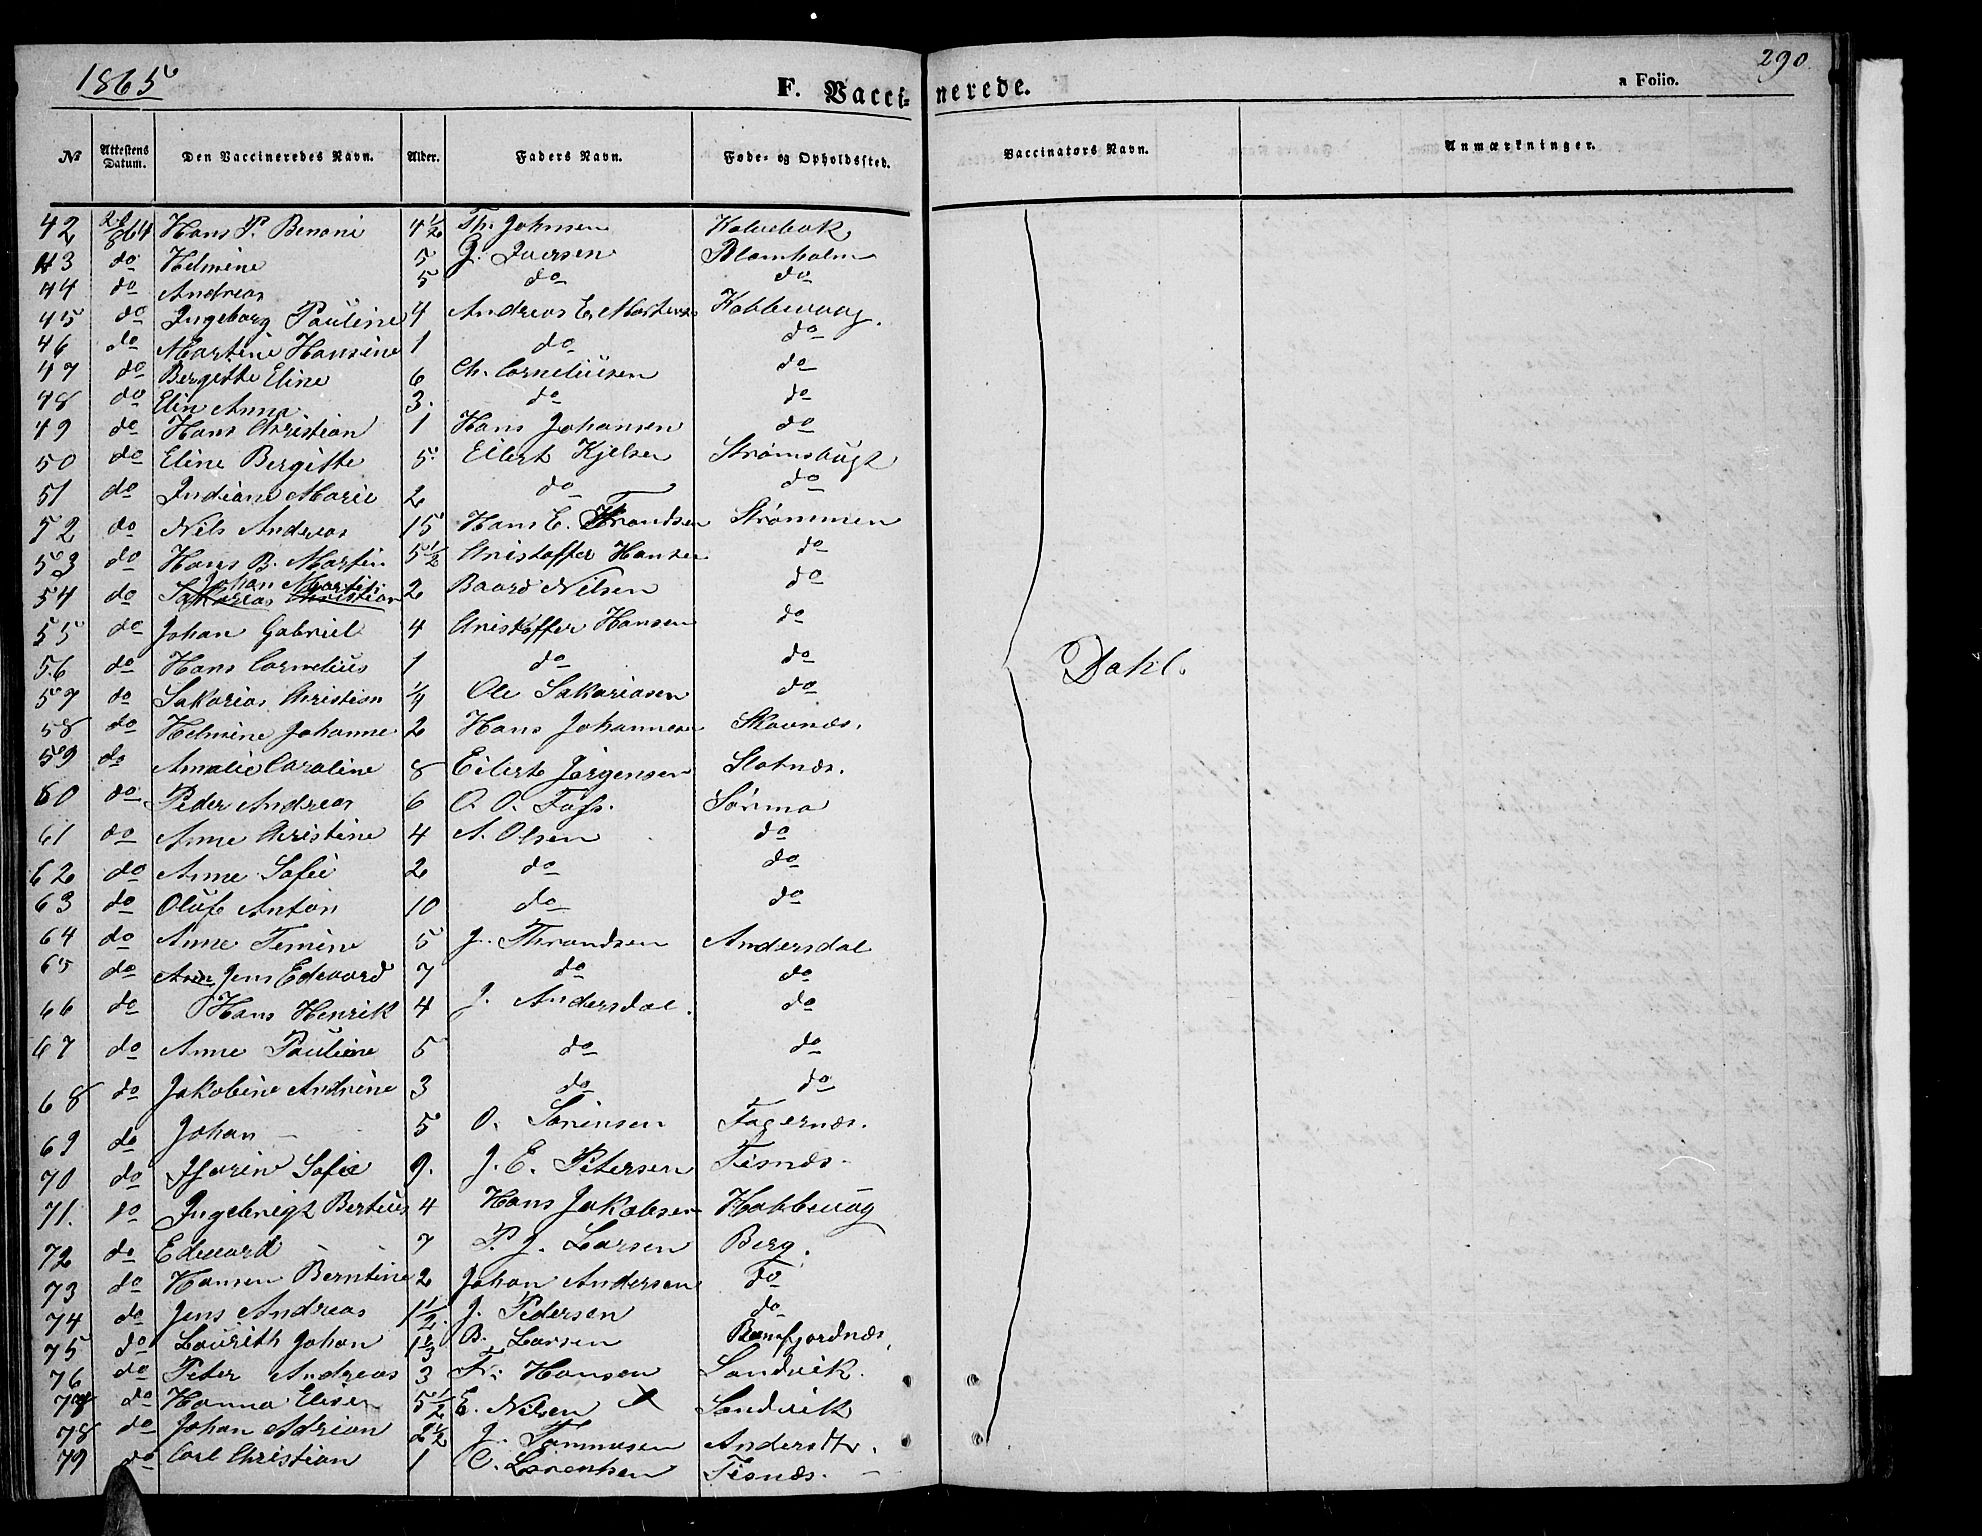 1865
F. Vaccinerede.
a Folio. 290.
No Attestens Datum. Den Vaccineredes Navn. Alder. Faders Navn. Føde- og Opholdssted. Vaccinators Navn. Anmærkninger.
42 Hans P. Benoni 4½ Th. Johnsen
43 do Helmine 5 J. Iversen
44 do Andreas 5 do do
45 do Ingeborg Pauline 4 Andreas E. Mortensen Kobbevaag.
46 do Martine Hansine 1 do do
47 do Bergitte Eline 6 Ch. Corneliusen do
48 do Elin Anna 3. do do
49 do Hans Christian 1 Hans Johansen do
50 do Eline Bergitte 5. Eilert Kjelsen Strømsbugt
51 do Indiane Marie 2 do do
52 do Nils Andreas 15 Hans E. Trondsen Strømmen
53 do Hans B. Martin 5½ Christoffer Hansen do
54 do Johan Martin Sakarias Christian 2 Baard Nilsen do
55 do Johan Gabriel 4 Christoffer Hansen do
56 do Hans Cornelius 1 do do
57 do Sakarias Christian ¼ Ole Sakariasen do
58 do Helmine Johanne 2 Hans Johannesen Skavnæs.
59 do Amalie Caroline 8 Eilert Jørgensen Slotnæs.
60 do Peder Andreas 6 O. O. Foss.
61 do Anne Christine 4 A. Olsen do
62 do Anne Sofie 2 do do
63 do Oluf Anton 10 do do
64 do Anne Temine 5 J. Throndsen Andersdal
65 do Jens Edvard 7 do do
66 do Hans Henrik 4 J. Andersdal. do
67 do Anne Pauline 5 do do
68 do Jakobine Andrine 3 do do
69 do Johan 5 O. Sørensen Fagernæs.
70 do Sofie 9. J. E. Petersen Tisnæs.
71. do Ingebrigt Bertius 4 Hans Jakobsen Kobbevaag
72 do Edvard 7 P. J. Larsen Berg.
73 do Hansen Berntine 2 Johan Andersen do
74 do Jens Andreas 1½. J. Pedersen do
75 do Laurith Johan 1⅓ B. Larsen Ramfjordnæs.
76 do Peter Andreas 3 Fr. Hansen Sandvik.
do Hanna Elisen 5½ E. Nilsen Sandvik
78 do Johan Adrian 2½ J. Tommasen
79 do Carl Christian 1 C. Lorentsen Tisnæs.
Dahl.